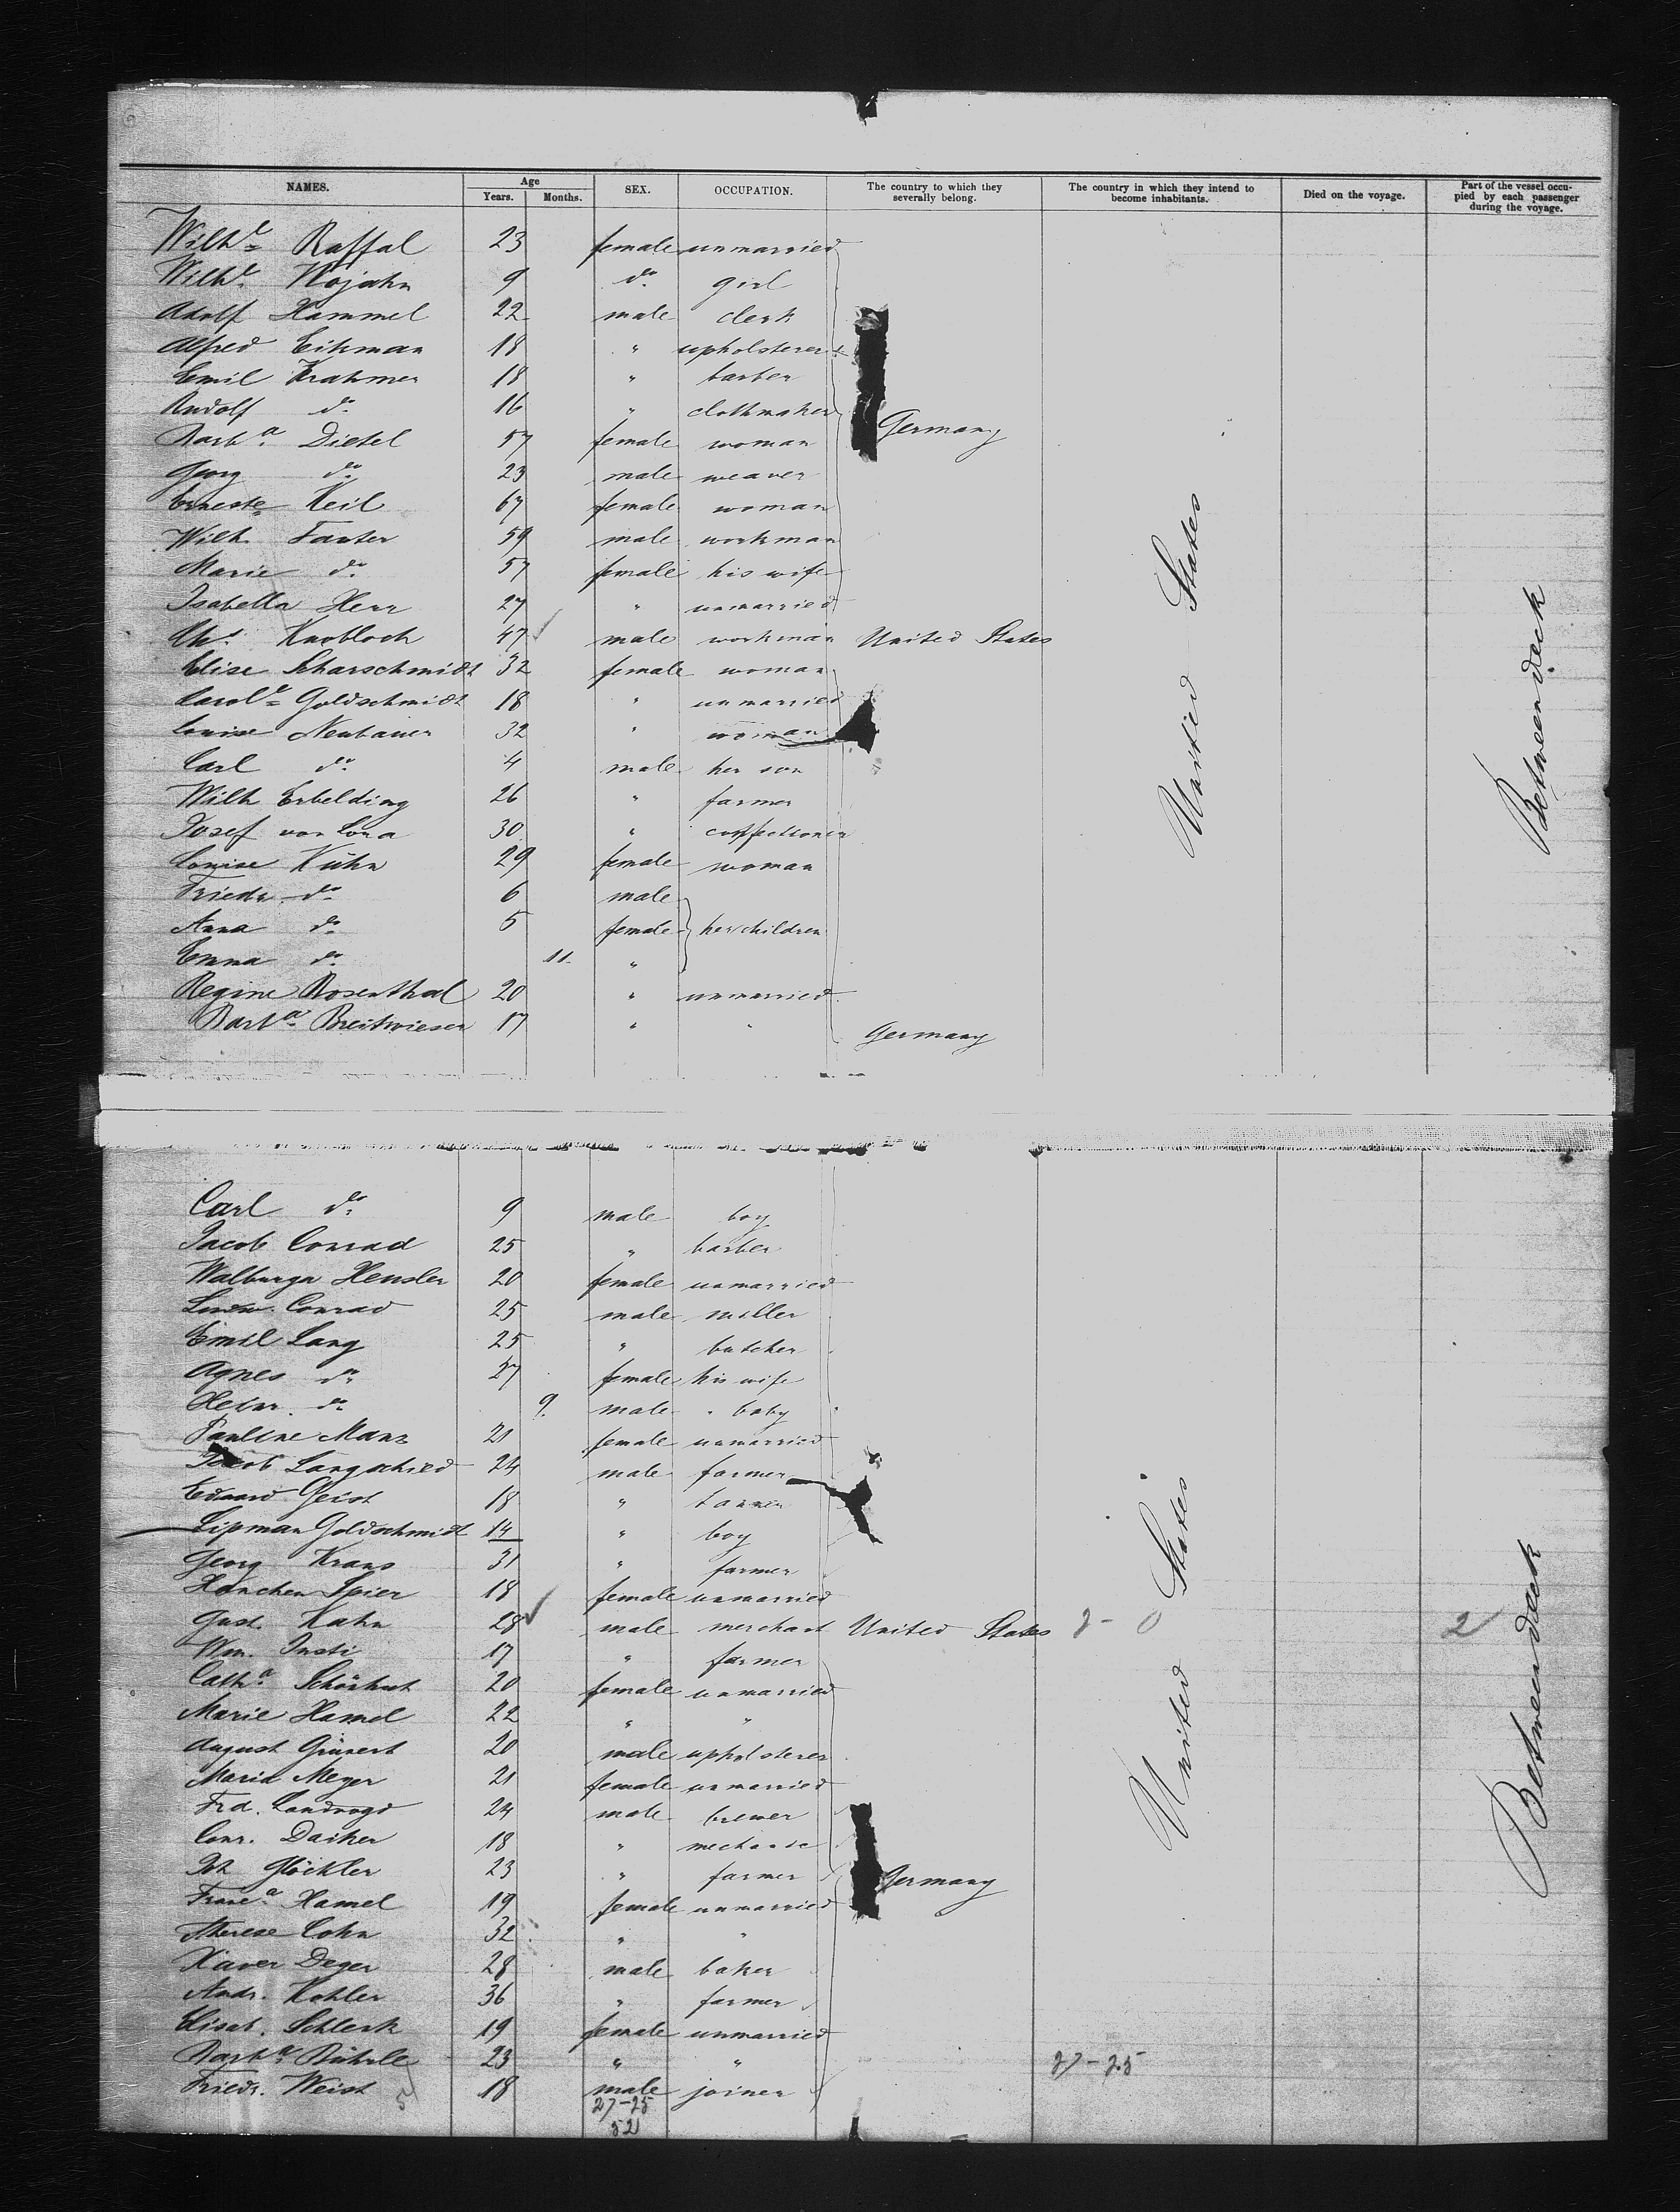 NAMES. Age Years. Months. SEX. OCCUPATION. The country to which they severally belong. The country in which they intend to become inhabitants. Died on the voyage. Part of the vessel occupied by each passenger during the voyage.
Wilhe Raffal 23 female unmarried
Wilhe Wojahn 9 do girl
Adolf Hammel 22 male clerk
Alfred Eikman 18 " upholsterer
Emil Krahmer 18 " barber
Rudolf do 16 " clothmaker
Barba Dietel 57 female woman Germany
Georg do 23 male weaver
Erneste Keil 67 female woman
Wilh. Fauter 59 male workman
Marie do 57 female his wife
Isabella Herr 27 " unmarried
Chs Knobloch 47 male workman United States
Elise Scharschmidt 32 female woman
Carole Goldschmidt 18 " unmarried
Louise Neubauer 32 " woman
Carl do 4 male her son
Wilh Erbelding 26 " farmer
Josef von Lona 30 " confectioner
Louise Kühn 29 female woman
Friedr. do 6 male
Anna do 5 female her children
Emma do 11 "
Regine Rosenthal 20 " unmarried
Barba Breitwieser 17 " " Germany
United States
Betweendeck
Carl do 9 male boy
Jacob Conrad 25 " barber
Walburga Hensler 20 female unmarried
Ludw. Conrad 25 male miller
Emil Lang 25 " butcher
Agnes do 27 female his wife
Heinr. do 9 male " baby
Pauline Manz 21 female unmarried
Jacob Langschied 24 male farmer
Eduard Geist 18 " tanner
Lipman Goldschmidt 14 " boy
Georg Kraus 31 " farmer
Hanchen Spier 18 female unmarried
Gust. Kahn 28 male merchant United States 2 - 0 2
Wm. Justi 17 " farmer
Catha 20 female unmarried
Marie Hamel 22 " "
August Grünert 20 male upholsterer
Maria Meyer 21 female unmarried
Frd. Landvogd 24 male brewer
Conr. Daiker 18 " mechanic
Joh Glöckler 23 " farmer Germany
Franca Hamel 19 female unmarried
Therese Cohn 32 " "
Xaver Deger 28 male baker
Andr. Kohler 36 " farmer
Elisab. Schlenk 19 female unmarried
Barba Bührle 23 " " 27-25
Friedr. Weist 18 male joiner
27-25
52
United States
Betweendeck